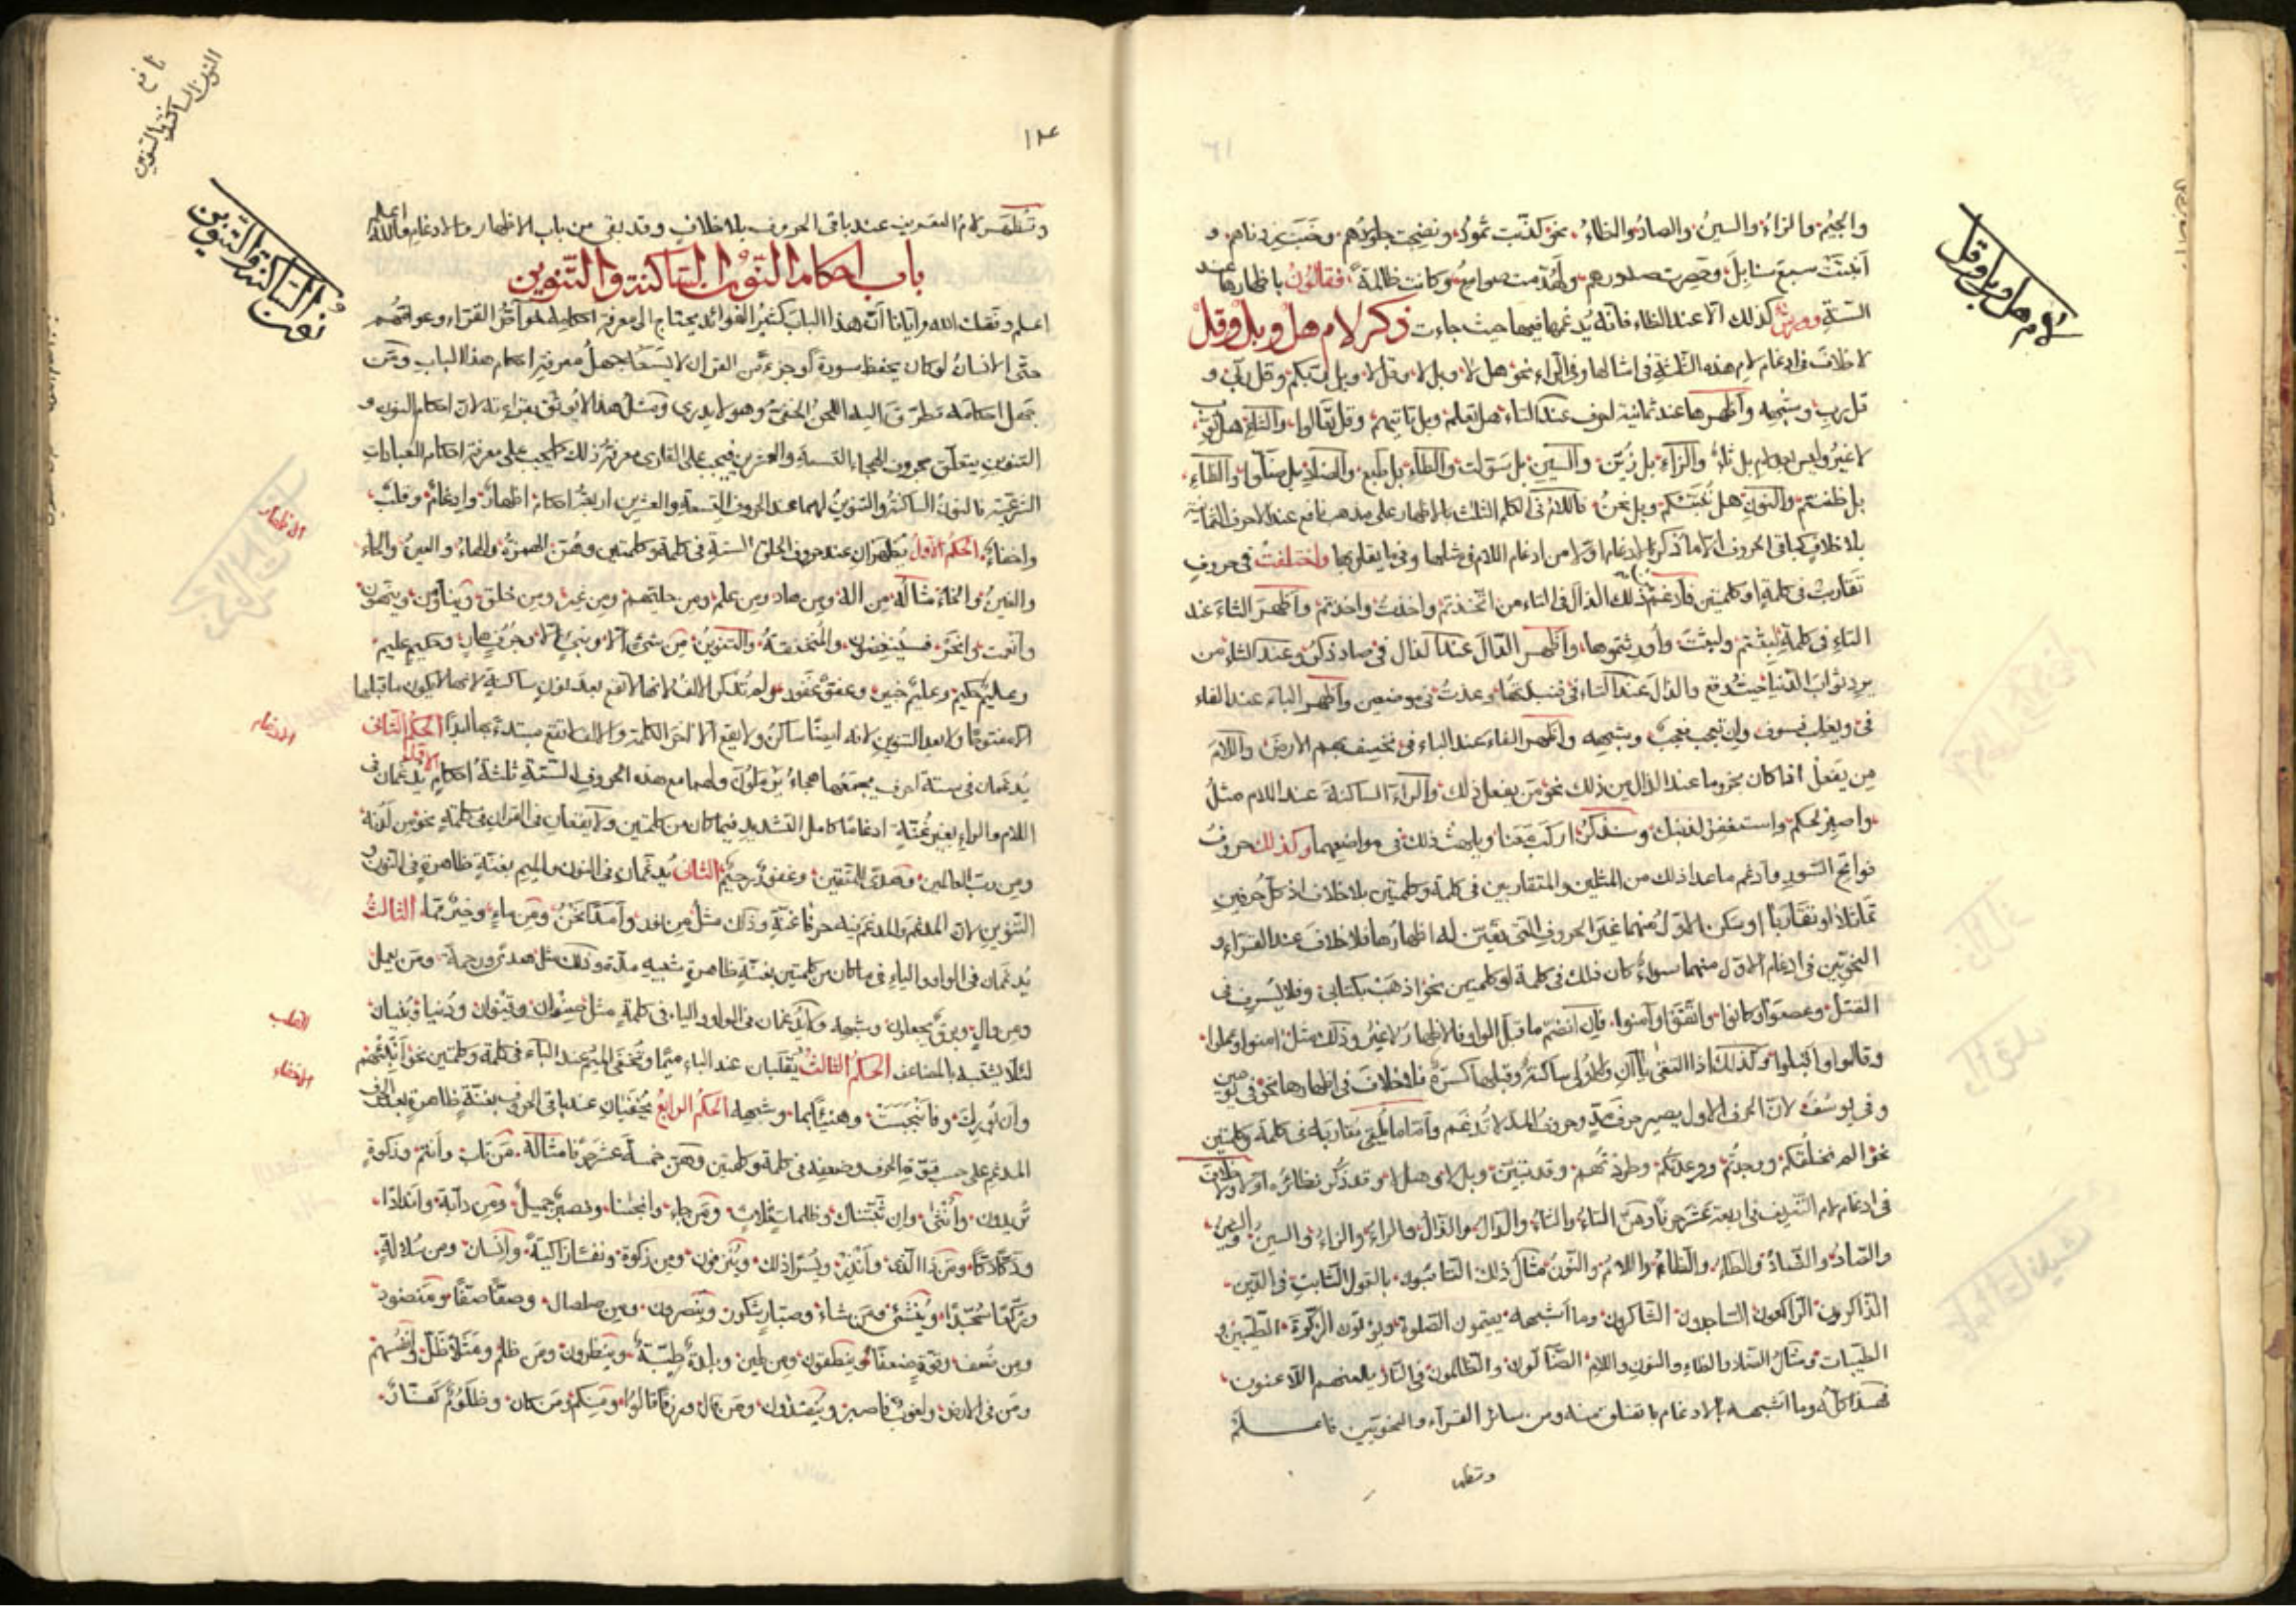 لام هل وبل وقل
والجيمُ والزاءُ والسينُ والصادُ والظاءُ نحو كذّبت ثمودُ ونضجت جلودُهم وخبت زدناهم و
أنبتت سبع سنابلَ وحصرت صدورهم ولهدّمت صوامعُ وكانت ظالمةً فقالُونُ باظهارها عند
الستّةِ وورشٌ كذلك الّا عند الظاء فانّه يُدغمها فيها حيث جاءت ذكر لام هل وبل وقل
لا خلافَ في ادغام لام هذه الثلثةِ في امثالها وفي الراءِ نحو هل لا وبل لا وقل لا وبل ربّكم وقل ربّ و
قل ربِ وشبهه وأظهرها عند ثمانية احرف عند التاء هل تعلم وبل تاتيهم وقل تعالوا والثاءِ هل ثوّب
لا غيرُ وليس بعد بل ثاءٌ والزاءِ بل زُيّن والسينِ بل سَوّلت والطاءِ بل طبع والضادِ بل ضلّوا والظاءِ
بل ظننتم والنونِ هل نُنبّئكم وبل نحنُ فاللامُ في الكلم الثلث بالاظهار على مذهب نافع عند الاحرف الثمانية
بلا خلافٍ كباقي الحروف الّا ما ذكر بالادغام اوّلا من ادغام اللام في مثلها وفي ما يقاربها واختلفتُ في حروفٍ
تقاربت في كلمةٍ او كلمتين فأدغم من ذلك الذالَ في التاء من اتّخذتم واخذتُ واخذتم وأظهرَ الثاءَ عند
التاءِ في كلمةِ لبِثتم ولبِثتَ وأُورثتموها وأظهر الدالَ عند الذال في صاد ذكرُ وعند الثاءِ من
يرد ثوابَ الدنيا حيثُ وقع والذالَ عند التاء في فنبذتُها وعذتُ في موضعين وأظهر الباءَ عند الفاء
في ويغلِب فسوف وان تعجب فعجبٌ وشبهه وأظهر الفاءَ عند الباءِ في نخسف بهم الارضَ واللامَ
مِن يفعلْ اذا كان مجزوما عند الذال من ذلك نحو مَن يفعل ذلك والراءَ الساكنةَ عند اللام مثلُ
واصبِر لحكم واستغفِر لذنبك وسنذكرُ اركب مّعنا ويلهث ذلك في مواضعهما وكذلك حروفُ
فواتح السّور وأدغم ما عدا ذلك من المثلين والمتقاربين في كلمةٍ وكلمتين بلا خلاف اذ كلّ حرفين
تماثلا او تقاربا وسكن الاوّلُ منهما غيرَ الحروفِ التي تعيّن له اظهارُها فلا خلافَ عند القرّاءِ و
النحويّين في ادغام الاوّل منهما سواءٌ كان ذلك في كلمة او كلمتين نحو اذهَبْ بكتابي وفلا يُسرِف في
القتل وعصَوْا وكانوا واتّقوا وآمنوا فإن انضمّ ما قبل الواو فالاظهارُ لا غيرُ وذلك مثل امنوا وعملوا
وقالوا واقبلوا وكذلك اذا التقى ياآنِ والاولى ساكنةٌ وقبلها كسرةٌ فلا خلافَ في اظهارها نحو في يومين
وفي يوسُفَ لانّ الحرف الاول يصير حرفَ مدٍّ وحروفُ المدّ لا تُدغم وأمّا ما لُقي مقاربَه في كلمة وكلمتين
نحو الم نخلقكم ووجدتُم ووعدتكم وطردتّهم وقد تبيّن وبل ران وهل لا وقد ذُكر نظائرُه اوّلا ولا خلافَ
في ادغام لام التعريف في اربعةَ عشرَ حرفًا وهي التاءُ والثاءُ والدالُ والذالُ والراءُ والزاءُ والسينُ والشينُ
والصّادُ والضّادُ والطاءُ والظاءُ واللامُ والنّونُ مثالُ ذلك التائبون بالقول الثابتِ في الدّين
الذّاكرون الرّاكعون السّاجدون الشّاكرين وما اشبهه يقيمون الصّلوةَ ويؤتون الزّكوةَ الطّيبين و
الطيّبات ومثالُ الضّاد والظاءِ والنونِ واللامِ الضّالّون والظّالمون في النّار يلعنهم اللّاعنون
فهذا كلّه وما اشبهه الادغام باتفاق منه ومن سائر القرّآء والنحويّين فاعلم
وتظهر
١٢٤
نافع
النون الساكنة والتنوين
نون الساكنة والتنوين
وتُظهَر لامُ التعريف عند باقي الحروف بلا خلافٍ وقد بقي من باب الاظهار والادغام والله اعلم
باب احكام النّون السّاكنة والتّنوين
اعلم وفّقك الله وايّانا أنّ هذا البابَ كثيرُ الفوائد يحتاج الى معرفة احكامه خواصُّ القرّاء وعوامُّهم
حتّى الانسانُ لو كان يحفظ سورةً أو جزءً من القران لا يَسَعُه جهلُ معرفةِ احكام هذا الباب ومَن
جهل احكامَه تطرّق اليه اللحنُ الخفيُّ وهو لا يدري ومثلُ هذا لا يُوثق بقراءته لانّ احكام النون و
التنوينِ يتعلّق بحروف الهجاء التسعةِ والعشرين فيجب على القاري معرفةُ ذلك كما يجب على معرفة احكام العبادات
الشرعيّة فالنونُ الساكنةُ والتنوينُ لهما عند الحروف التسعة والعشرين اربعةُ احكام اظهارٌ وادغامٌ وقلبٌ
الاظهار
واخفاءٌ الحكم الاوّلُ يُظهَرانِ عند حروف الحلق الستّةِ في كلمةٍ وكلمتين وهُنّ الهمزةُ والهاءُ والعينُ والحاءُ
والغينُ والخاءُ مثالُه مِن اله ومِن هاد ومِن علم ومن حليّهم ومِن غير ومن خلق وينأون وينهون
وأنعمت وانحَر فسيُنغضون والمُنخنقةُ والتنوينُ مِن شئ الّا ونبيّ الّا وجُرُفٍ هارٍ وحكيم عليم
وعليمٌ حكيم وعليمٌ خبير وعفوٌّ غفور ولم تُذكر الالفُ لانها لا تقع بعد نونٍ ساكنةٍ لانها لا يكون ما قبلها
الّا مفتوحًا ولا بعد التنوينِ لانه ايضًا ساكنٌ ولا يقع الّا اخرَ الكلمة والالف لا تقع مبتدءً بها ابدًا الحكم الثّاني
الادغام
يُدغمان في ستة احرف يجمعُها هجاءُ يَرمَلُونَ ولهما مع هذه الحروف السّتّةِ ثلثةُ احكامٍ الاوّل يُدغمان في
اللام والراءِ بغير غُنّةٍ ادغامًا كامل التشديدِ فيما كان من كلمتين ولا يقعان في القرانِ في كلمةٍ نحو من لدنه
ومِن ربّ العالمين وهدًى للمتقين وغفورٌ رحيمٌ الثّاني يُدغمانِ في النون والميم بغنّةٍ ظاهرةٍ في النون و
التنوين لانّ المدغم والمدغم فيه حرفا غنّةٍ وذلك مثلُ مِن نور وأمنةً نحنُ ومِن ماءٍ وخيرٌ ممّا الثالثُ
يُدغمان في الواو والياءِ في ما كان من كلمتين بغنّةٍ ظاهرةٍ شبيهِ مدّة وذلك مثل هدًى ورحمةً ومَن يعمل
ومِن والٍ وبرقٌ يجعلون وشبهه ولا يُدغمان في الواو والياءِ في كلمةٍ مثل صِنوان وقِنوان ودُنيا وبُنيان
القلب
لئلّا يشتبه بالمضاعف الحكم الثالثُ يُقلَبان عند الباء ميمًا وتُخفَى الميمُ عند الباء في كلمة وكلمتين نحو أَنبِئهُم
الاخفاء
وأن بُورِكَ وفانبجَسَتْ وهنيئًا بما وشبهه الحكمُ الرابعُ يُخفَيانِ عند باقي الحروف بغنّةٍ ظاهرةٍ بعد الحرف
المدغمِ على حسب قوّة الحرف وضعفِه في كلمةٍ وكلمتين وهن خمسةَ عشرَ حرفًا مثالُه مَن تاب وأنتم وذكوةٍ
تُريدون وأُنثى وان ثَبّتناك وظلماتٍ ثلاث ومَن جاء وانجينا وفصبرٌ جميلٌ ومِن دابّة وأندادًا
ودكًّا دكًّا ومَن ذا الّذي وأَنذِر ويُسرًا ذلك ويُنزفون ومِن زكوة ونفسًا زاكيةً وإنسان ومن سُلالةٍ
ورُكّعًا سُجّدًا ويُنشئ فمَن شاء وصبّارٍ شكور ويُنصرون ومِن صلصال وصفًّا صفًّا ومَنضود
ومِن ضُعف وقوّةٍ ضعفًا وينطقون ومِن طين وبلدةٌ طيّبةٌ وينظرون ومَن ظلم ومثلًا ظلّ وأنفسهم
ومَن في الارض ولغوبٌ فاصبر ويُنقذون ومَن قال ورزقًا قالوا ومِنكم ومَن كان وظلومٌ كفّارٌ